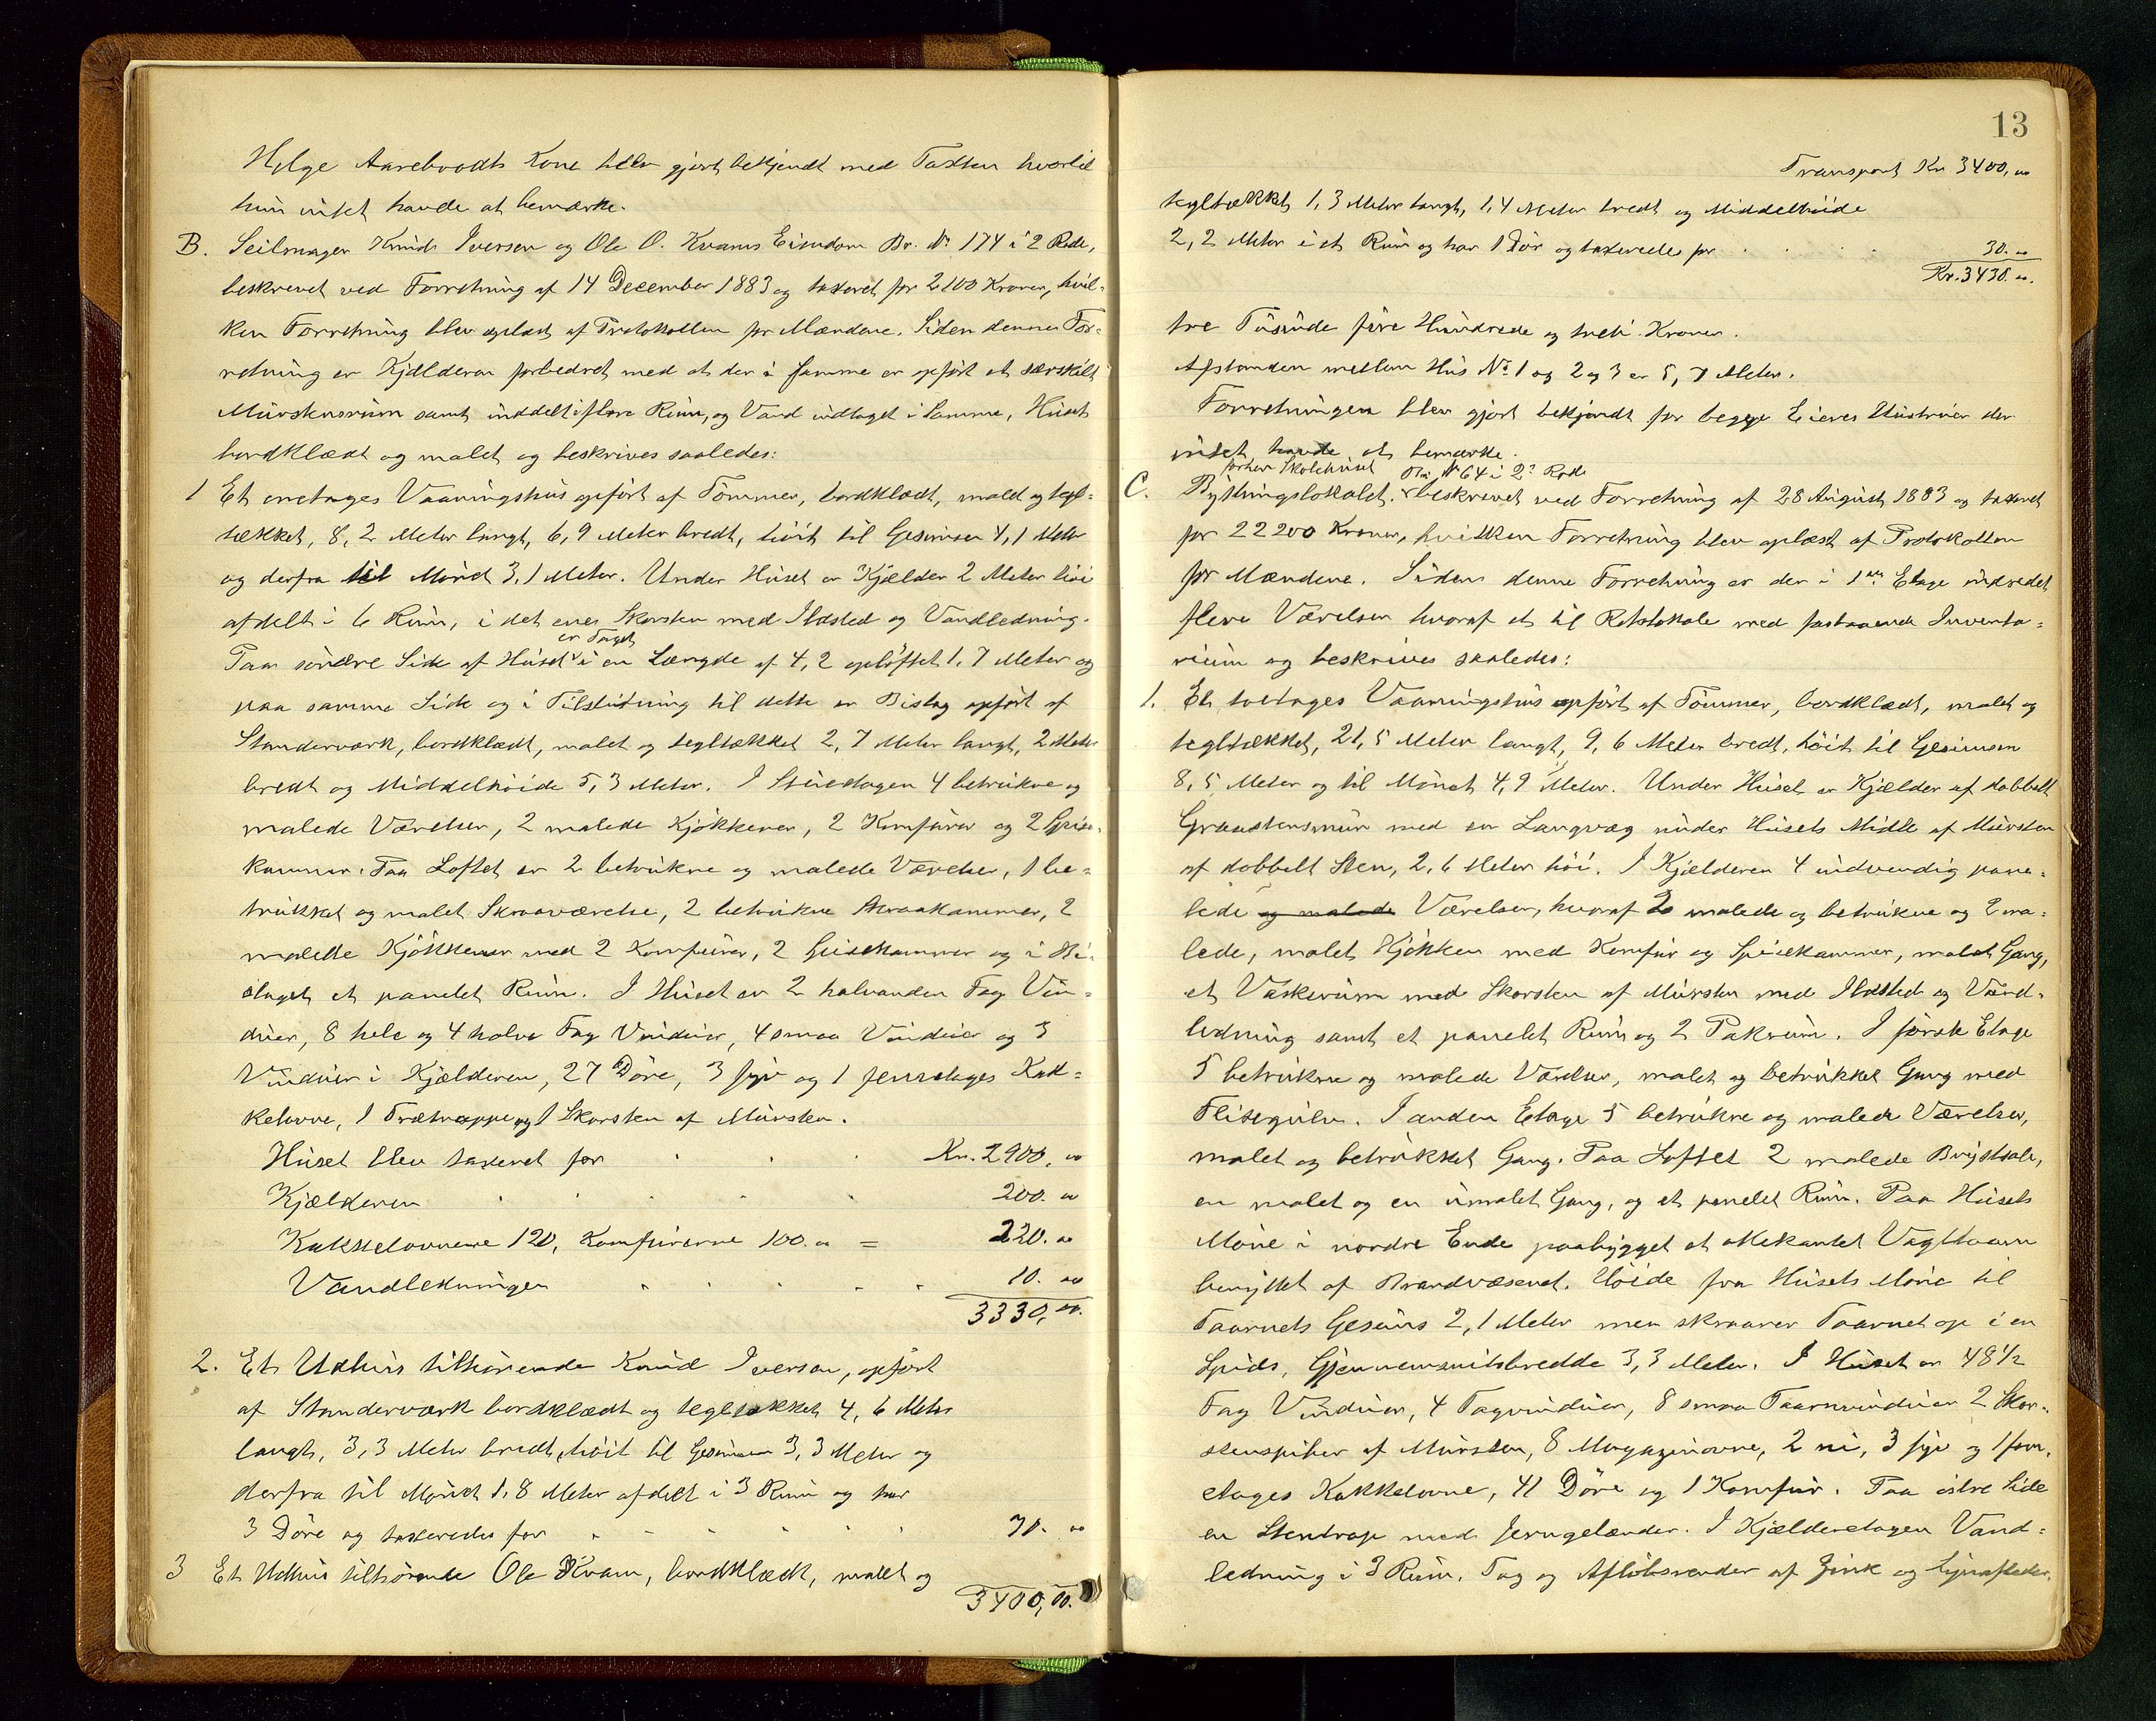 Helge Aarebrodts Kone blev gjort bekjendt med Taxten hvortil
hun intet havde at bemærke.
B. Seilmager Knud Iversen og Ole O. Kvams Eiendom Br. № 174 i 2 Rode,
beskrevet ved Forretning af 14 December 1883 og taxeret for 2100 Kroner, hvil-
ken Forretning blev oplæst af Protokollen for Mændene. Siden denne For-
retning er Kjælderen forbedret med at der i samme er opført et særskilt
Murstensrum samt inddelt i flere Rum, og Vand indtaget i samme, Huset
bordklædt og malet og beskrives saaledes:
1 Et enetages Vaaningshus opført af Tømmer, bordklædt, malet og tegl-
tækket, 8,2 Meter langt, 6,9 Meter bredt, høit til Gesimsen 4,1 Meter
og derfra til Mønet 3,1 Meter. Under Huset er Kjælder 2 Meter høi
afdelt i 6 Rum, i det ene Skorsten med Ildsted og Vandledning.
er Taget
Paa søndre Side af Huset i en Længde af 4,2 opløftet 1,7 Meter og
paa samme Side og i Tilslutning til dette er Bislag opført af
Standerværk, bordklædt, malet og tegltækket 2,7 Meter langt, 2 Meter
bredt og Middelhøide 5,3 Meter. I Stueetagen 4 betrukne og
malede Værelser, 2 malede Kjøkkener, 2 Komfurer og 2 Spise-
kammer. Paa Loftet er 2 betrukne og malede Værelser, 1 be-
trukket og malet Skraaværelse, 2 betrukne Skraakammer, 2
malede Kjøkkener med 2 Komfurer, 2 Spisekammer og i Bi-
slaget et panelet Rum. I Huset er 2 halvanden Fag Vin-
duer, 8 hele og 4 halve Fag Vinduer, 4 smaa Vinduer og 3
Vinduer i Kjælderen, 27 Døre, 3 fyr og 1 femetages Kak-
kelovne, 1 Trætrappe og 1 Skorsten af Mursten.
Huset blev taxeret for Kr. 2900,00
Kjælderen 200.00
Kakkelovnene 120, Komfurerne 100.00 = 220.00
Vandledningen 10.00
3330,00.
2. Et Udhus tilhørende Knud Iversen, opført
af Standerværk bordklædt og tegltækket 4,6 Meter
langt, 3,3 Meter bredt, høit til Gesimsen 3,3 Meter og
derfra til Mønet 1,8 Meter afdelt i 3 Rum og har
3 Døre og taxeredes for 70.00
3 Et Udhus tilhørende Ole Kvam, bordklædt, malet og
3400,00.
13
Transport Kr 3400,00
tegltækket 1,3 Meter langt, 1,4 Meter bredt og Middelhøide
2,2 Meter i et Rum og har 1 Dør og taxeredes for 30.00
Kr. 3430.00.
tre Tusinde fire Hundrede og treti Kroner.
Afstanden mellem Hus № 1 og 2 og 3 er 5,7 Meter.
Forretningen blev gjort bekjendt for begge Eieres Hustruer der
intet havde at bemærke.
forhen Skolehuset Br. № 64 i 2' Rode
C. Bytingslokalet. beskrevet ved Forretning af 28 August 1883 og taxeret
for 22200 Kroner, hvilken Forretning blev oplæst af Protokollen
for Mændene. Siden denne Forretning er der i 1ste Etage indredet
flere Værelser hvoraf et til Retslokale med fastnaende Inventa-
rium og beskrives saaledes:
1. Et toetages Vaaningshus opført af Tømmer, bordklædt, malet og
tegltækket, 21,5 Meter langt, 9,6 Meter bredt, høit til Gesimsen
8,5 Meter og til Mønet 4,9 Meter. Under Huset er Kjælder af dobbelt
Graastensmur med en Langvæg under Husets Midte af Mursten
af dobbelt Sten, 2,6 Meter høi. I Kjælderen 4 indvendig pane-
lede og malede Værelser, hvoraf 2 malede og betrukne og 2 ma-
lede, malet Kjøkken med Komfur og Spisekammer, malet Gang,
et Vaskerum med Skorsten af Mursten med Ildsted og Vand-
ledning samt et panelet Rum og 2 Pakrum. I første Etage
5 betrukne og malede Værelser, malet og betrukket Gang med
Flisegulv. I anden Etage 5 betrukne og malede Værelser,
malet og betrukket Gang. Paa Loftet 2 malede Brystsale,
en malet og en umalet Gang, og et panelet Rum. Paa Husets
Møne i nordre Ende paabygget et ottekantet Vagttaarn
benyttet af Brandvæsenet. Høide fra Husets Møne til
Taarnets Gesims 2,1 Meter men skraaner Taarnet op i en
Spids, Gjennemsnitsbredde 3,3 Meter. I Huset er 48 1/2
Fag Vinduer, 4 Tagvinduer, 8 smaa Taarnvinduer 2 Skor-
stenspiber af Mursten, 8 Magazinovne, 2 ni, 3 fyr og 1 fem-
etages Kakkelovne, 41 Døre og 1 Komfur. Paa østre Side
en Stentrap med Jerngelænder. I Kjælderetagen Vand-
ledning i 3 Rum. Tag og Afløbsrender af Zink og Lynafleder.